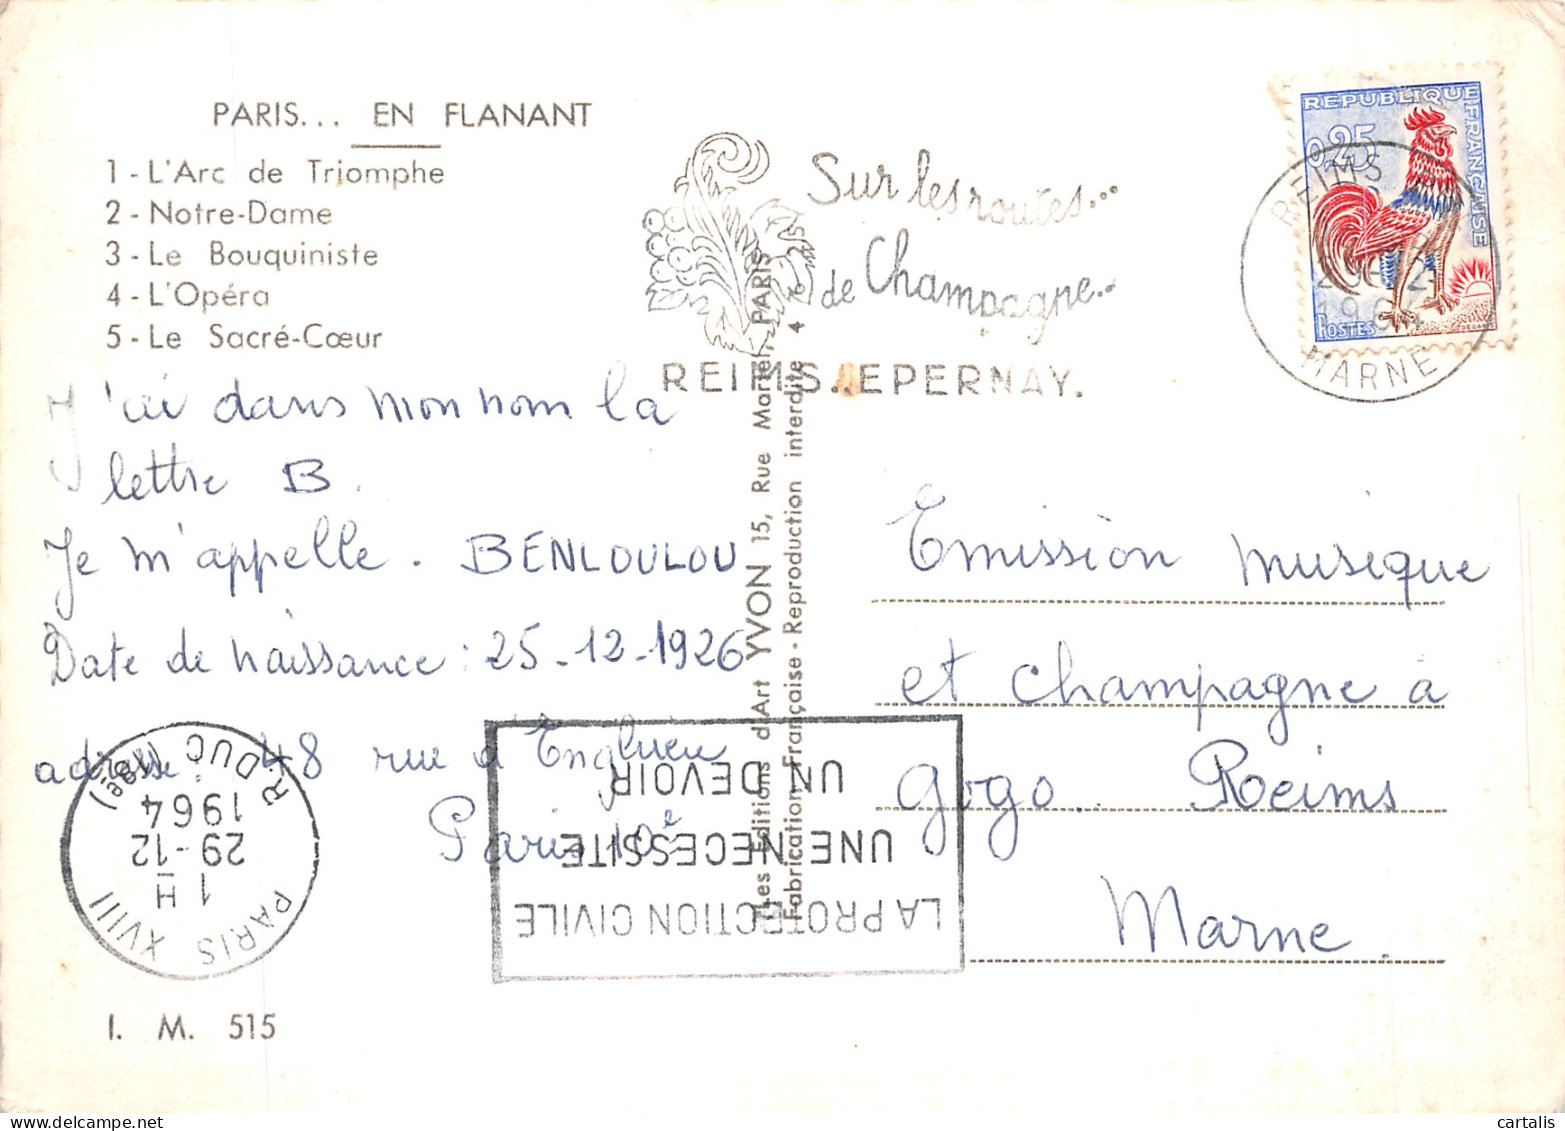 PARIS... EN FLANANT
1 - L'Arc de Triomphe
2 - Notre-Dame
3 - Le Bouquiniste
4 - L'Opéra
5 - Le Sacré-Cœur
J'ai dans mon nom la
lettre B.
Je m'appelle. BENLOULOU
Date de naissance : 25-12-1926
adresse 48 rue d'Enghien
Paris 10e
I. M. 515
Sur les routes...
de Champagne..
REIMS..EPERNAY.
REPUBLIQUE FRANÇAISE
0,25
POSTES
REIMS
1964
MARNE
Les Editions d'Art YVON 15, Rue Martel, PARIS
Fabrication Française - Reproduction interdite 4
Emission musique
et champagne à
gogo.. Reims
Marne
LA PROTECTION CIVILE
UNE NECESSITE
UN DEVOIR
PARIS XVIII
1 H
29-12
1964
R. DUC (18e)
cartalis